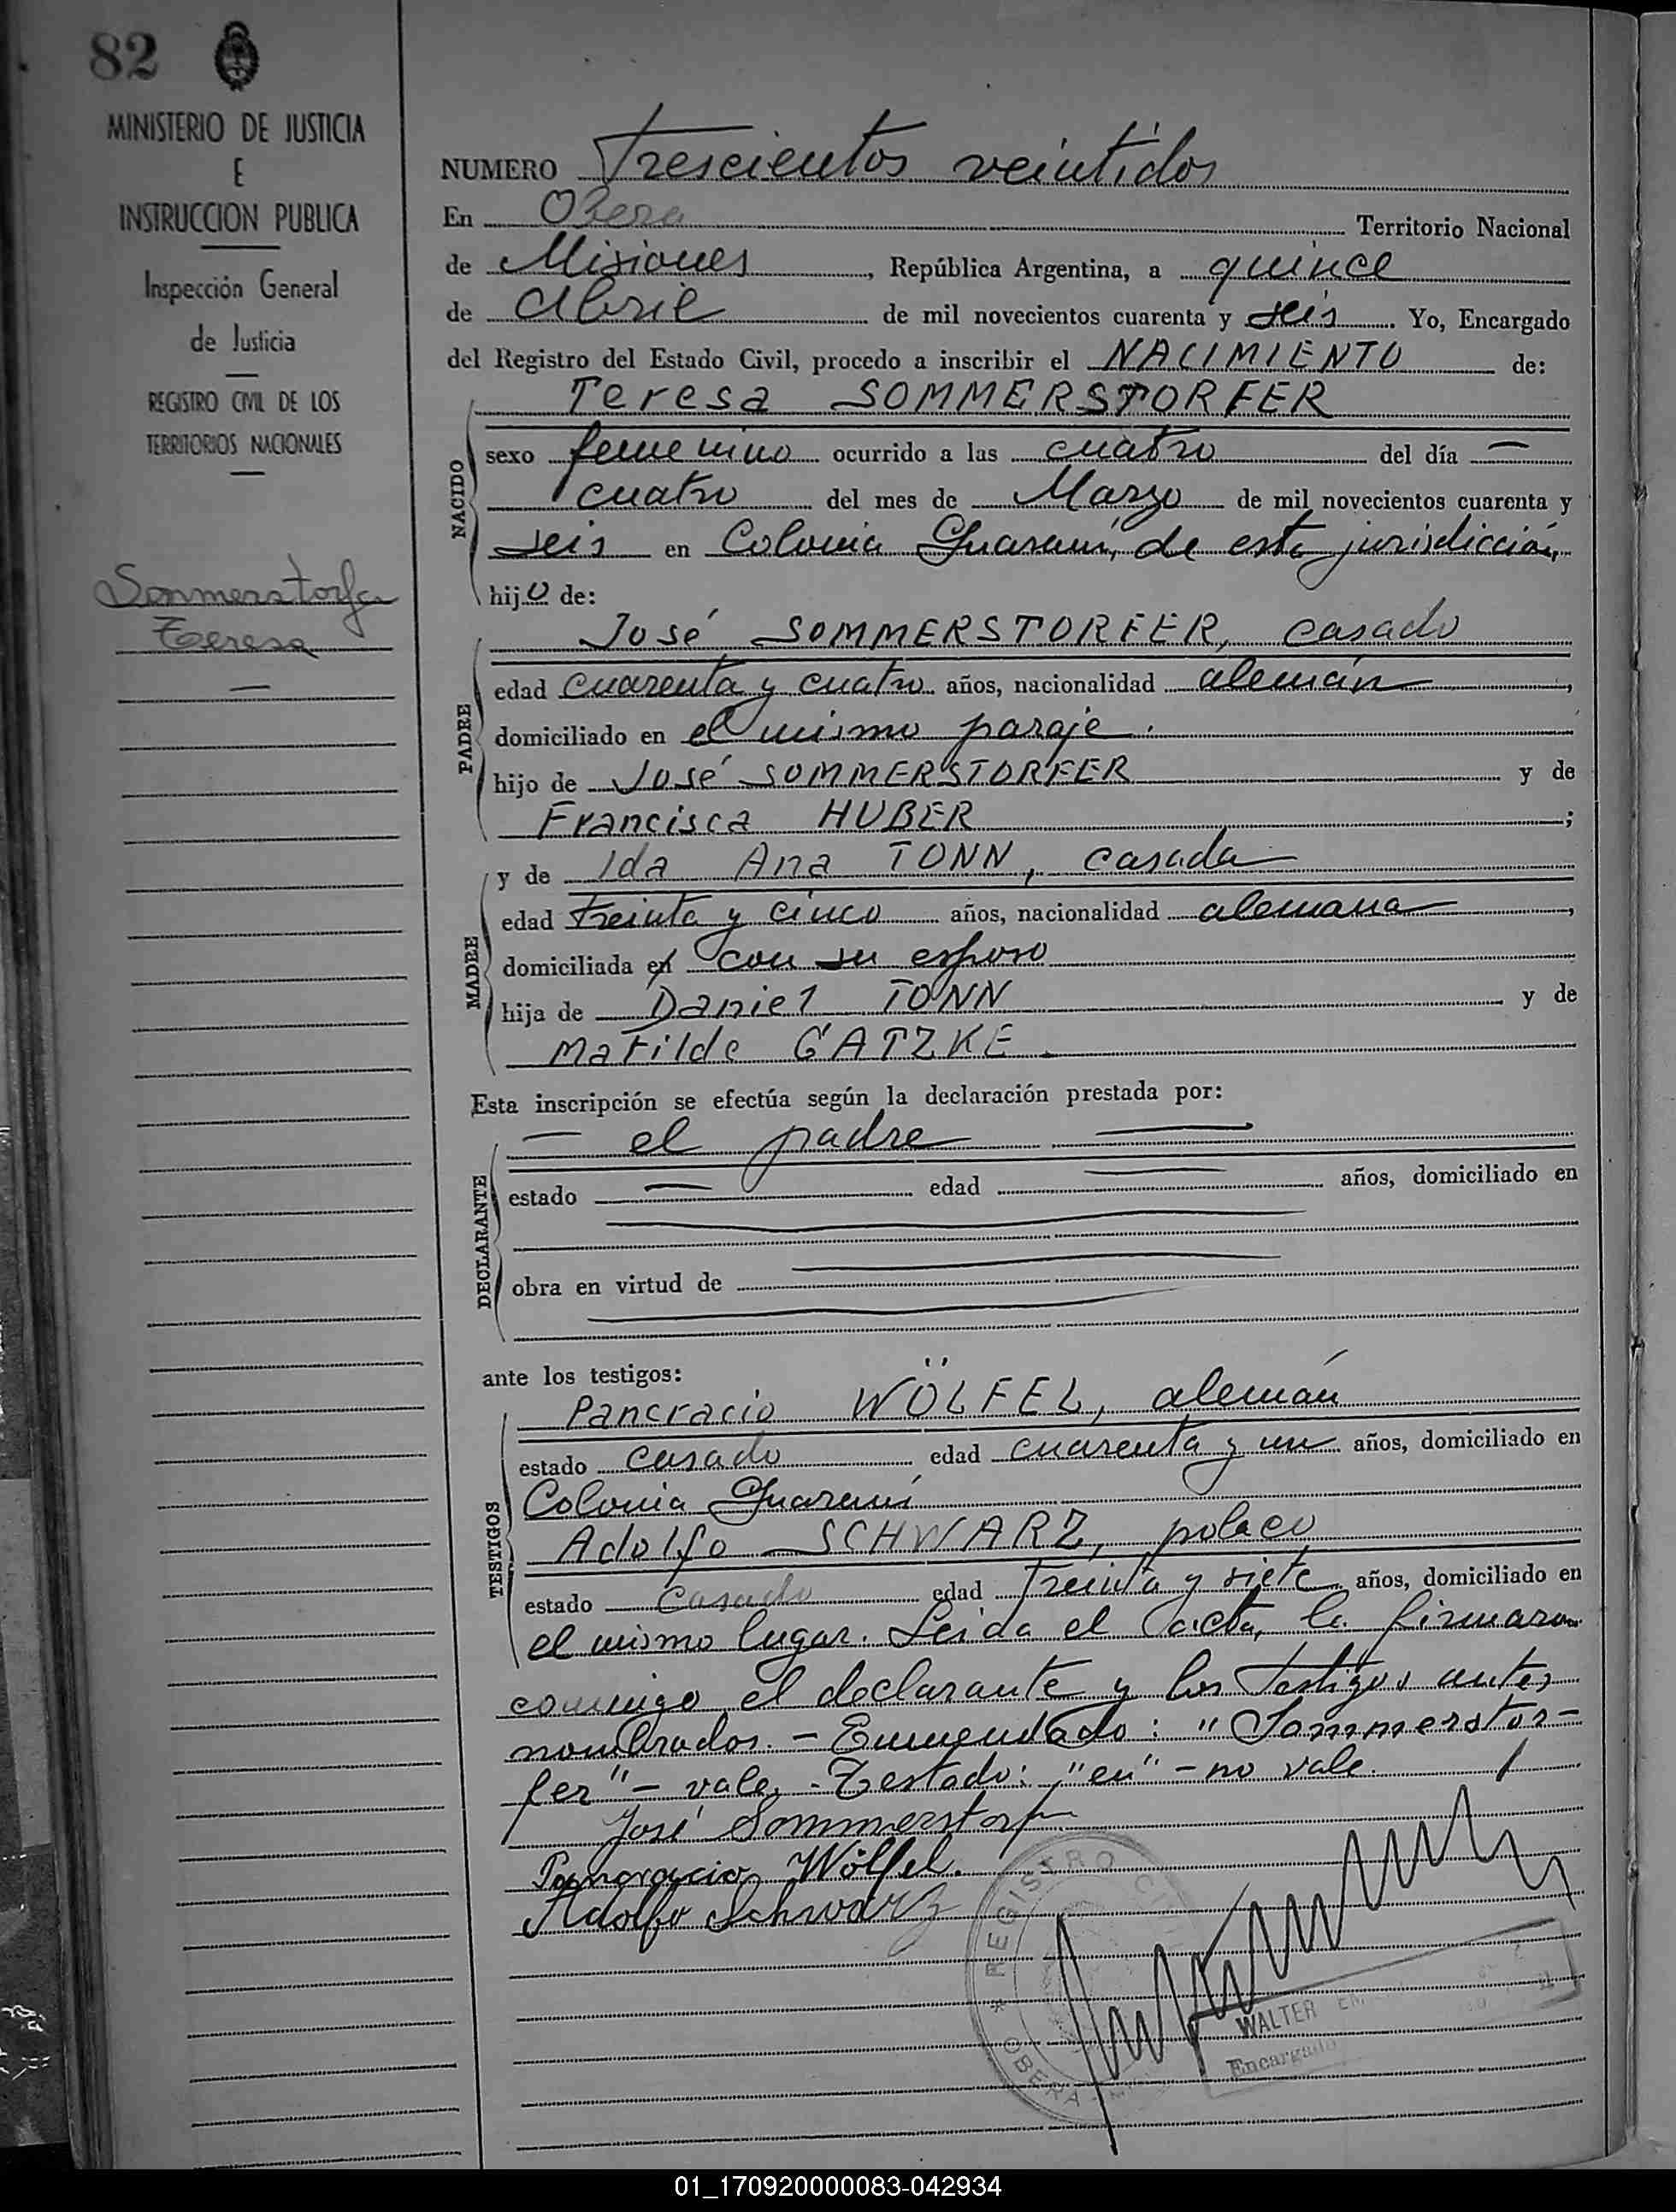 82
MINISTERIO DE JUSTICIA
E
INSTRUCCION PUBLICA
Inspección General
de Justicia
REGISTRO CIVIL DE LOS
TERRITORIOS NACIONALES
Sommerstorfer
Teresa
NUMERO Trescientos veintidos
En Obera Territorio Nacional
de Misiones, República Argentina, a quince
de Abril de mil novecientos cuarenta y seis. Yo, Encargado
del Registro del Estado Civil, procedo a inscribir el NACIMIENTO de:
NACIDO
Teresa SOMMERSTORFER
sexo femenino ocurrido a las cuatro del día —
cuatro del mes de Marzo de mil novecientos cuarenta y
seis en Colonia Guaraní, de esta jurisdicción,
hijo de:
PADRE
José SOMMERSTORFER, casado
edad cuarenta y cuatro años, nacionalidad alemán,
domiciliado en el mismo paraje.
hijo de José SOMMERSTORFER y de
Francisca HUBER;
MADRE
y de Ida Ana TONN, casada
edad treinta y cinco años, nacionalidad alemana,
domiciliada en con su esposo
hija de Daniel TONN y de
Matilde GATZKE.
Esta inscripción se efectúa según la declaración prestada por:
DECLARANTE
— el padre —
estado — edad — años, domiciliado en
obra en virtud de
ante los testigos:
TESTIGOS
Pancracio WÖLFEL, alemán
estado casado edad cuarenta y un años, domiciliado en
Colonia Guaraní
Adolfo SCHWARZ, polaco
estado casado edad treinta y siete años, domiciliado en
el mismo lugar. Leida el acta, la firmaron
conmigo el declarante y los testigos antes
nombrados. - Enmendado: "Sommerstor-
fer" - vale. - Testado: "en" - no vale.
José Sommerstorfer
Pancracio Wölfel.
Adolfo Schwarz
REGISTRO CIVIL
* OBERA
WALTER
Encargado
01_170920000083-042934